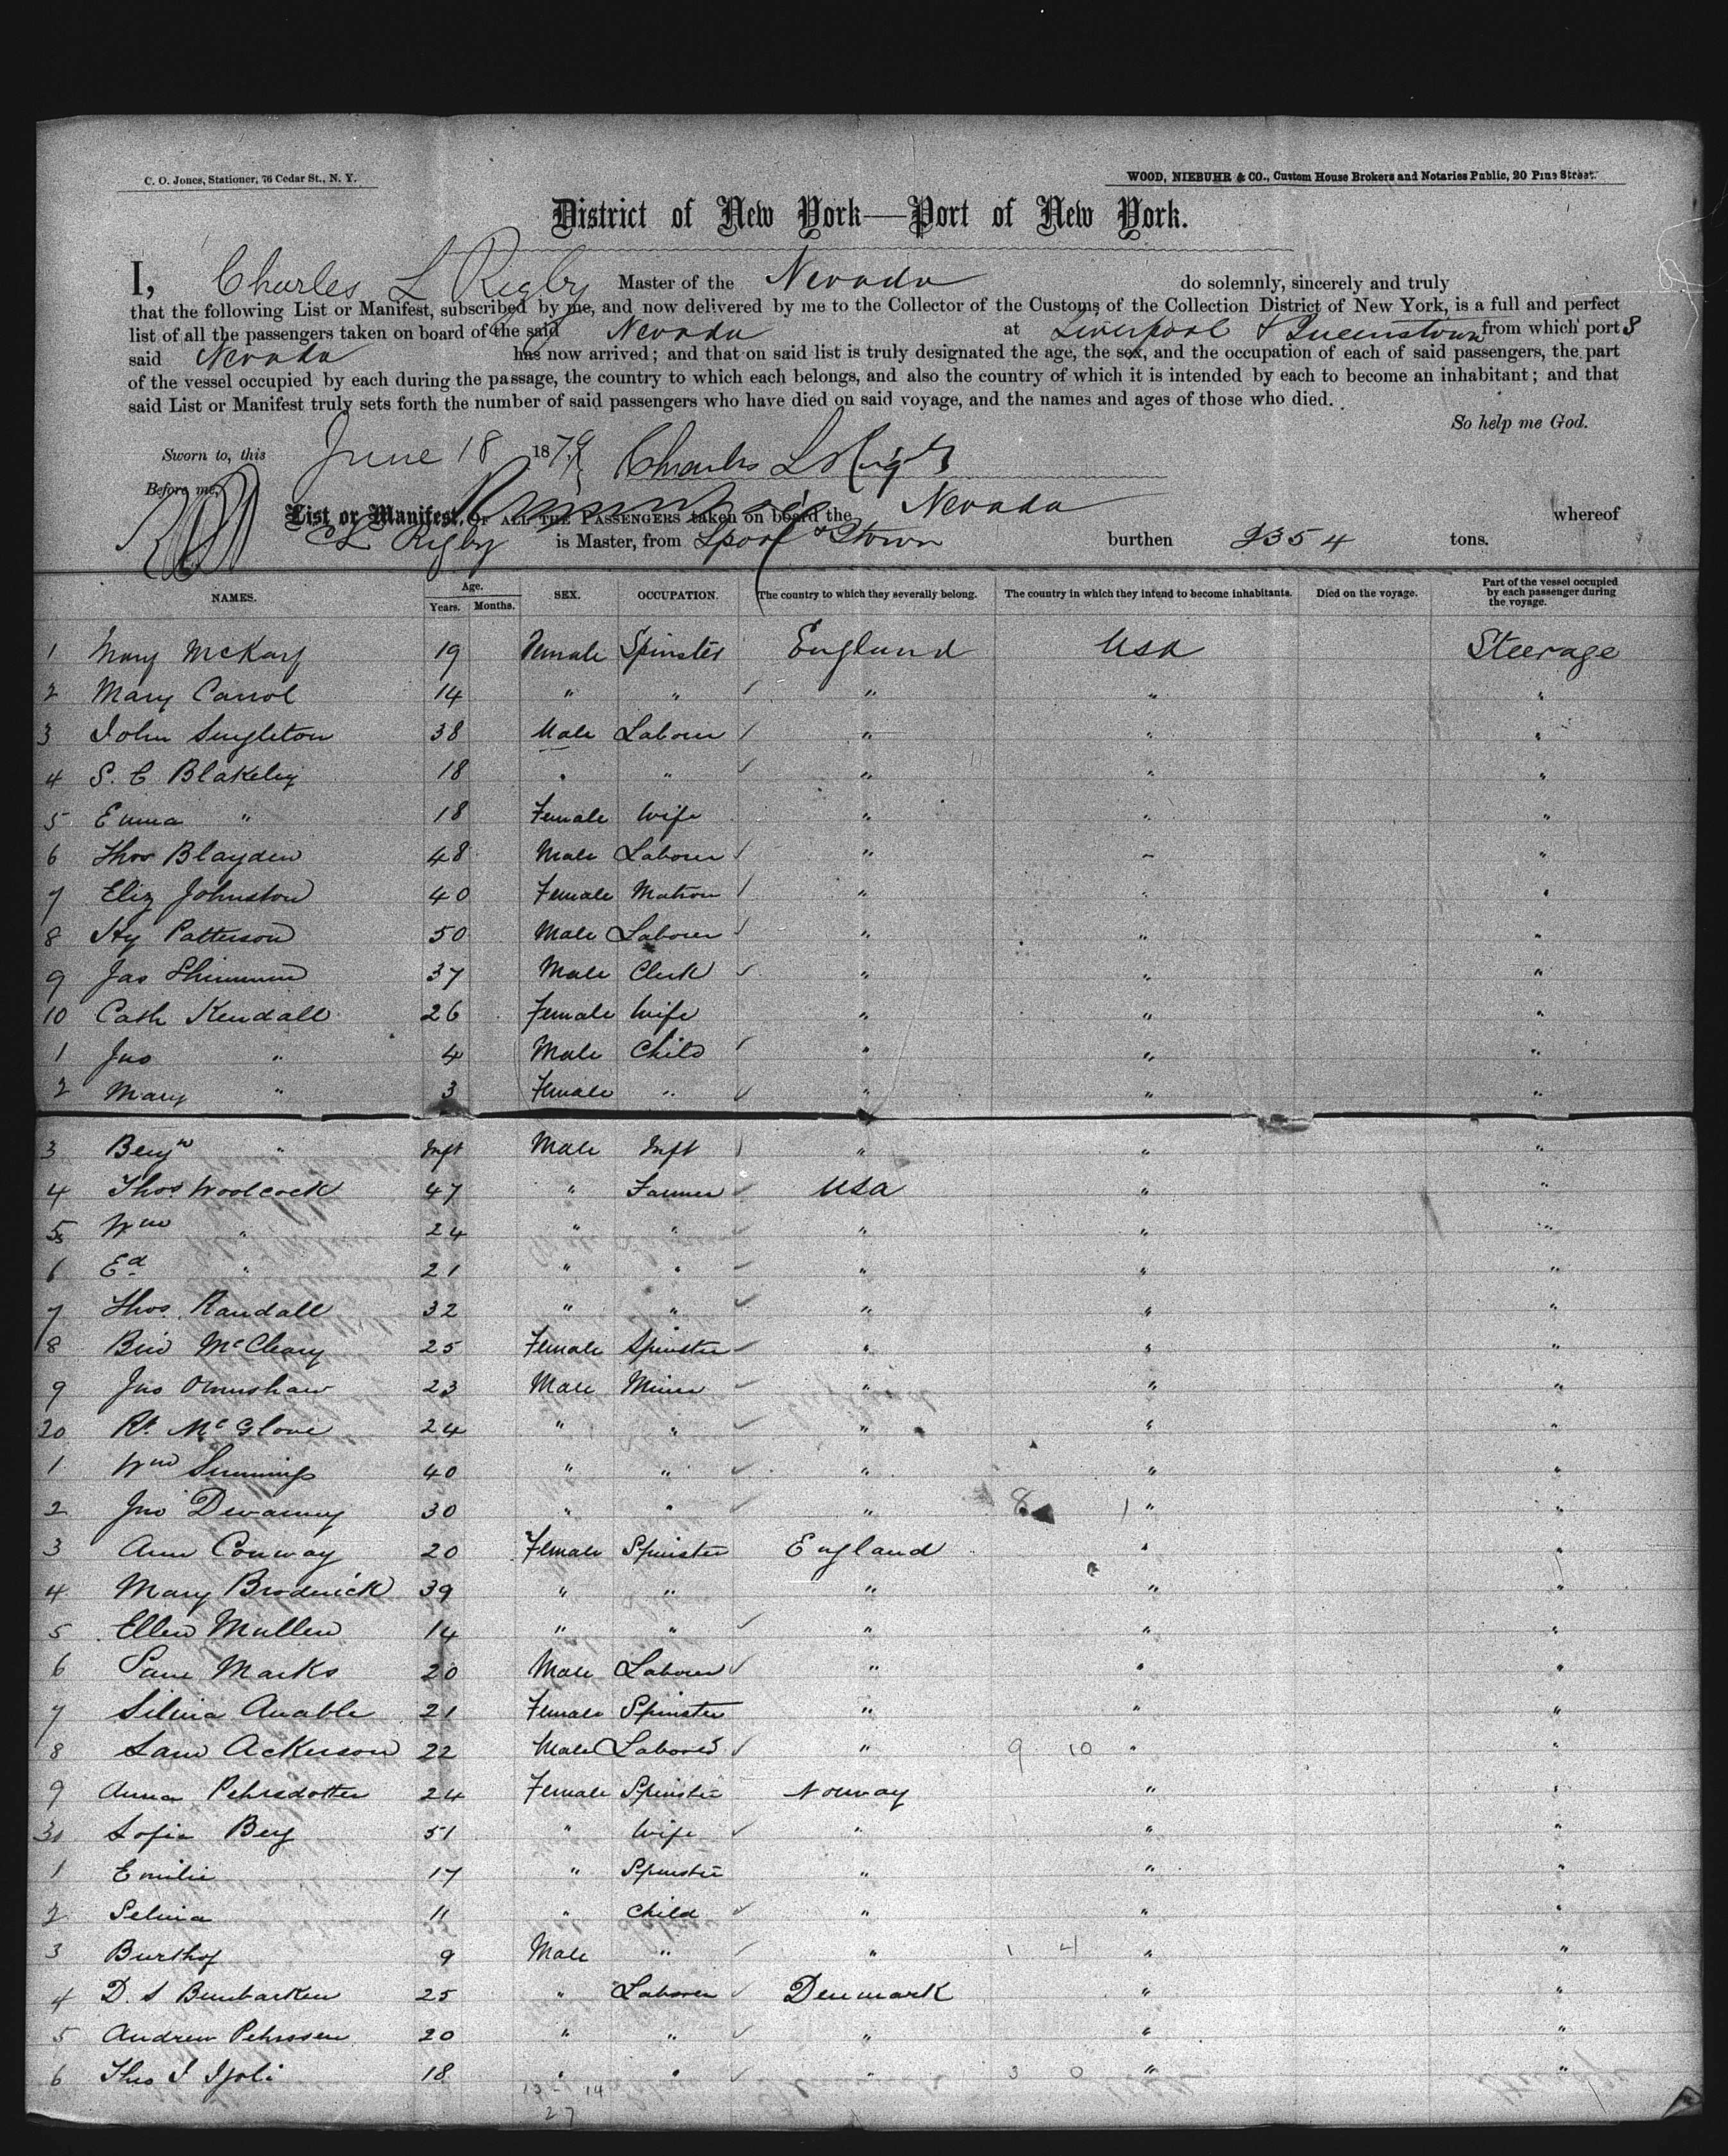 C. O. Jones, Stationer, 76 Cedar St., N. Y.
WOOD, NIEBUHR & CO., Custom House Brokers and Notaries Public, 20 Pine Street.
District of New York—Port of New York.
I, Charles L Rigby Master of the Nevada do solemnly, sincerely and truly
that the following List or Manifest, subscribed by me, and now delivered by me to the Collector of the Customs of the Collection District of New York, is a full and perfect
list of all the passengers taken on board of the said Nevada at Liverpool & Queenstown from which port s
said Nevada has now arrived; and that on said list is truly designated the age, the sex, and the occupation of each of said passengers, the part
of the vessel occupied by each during the passage, the country to which each belongs, and also the country of which it is intended by each to become an inhabitant; and that
said List or Manifest truly sets forth the number of said passengers who have died on said voyage, and the names and ages of those who died.
So help me God.
Sworn to, this June 18 1879 Charles L Rigby
Before me,
List or Manifest, OF ALL THE PASSENGERS taken on board the Nevada whereof
C L Rigby is Master, from Lpool & Qtown burthen 2354 tons.
NAMES. Age. Years. Months. SEX. OCCUPATION. The country to which they severally belong. The country in which they intend to become inhabitants. Died on the voyage. Part of the vessel occupied by each passenger during the voyage.
1 Mary McKay 19 Female Spinster England USA Steerage
2 Mary Carrol 14 " " " " "
3 John Singleton 38 Male Labourer " " "
4 S. C Blakeley 18 " " " " "
5 Emma " 18 Female Wife " " "
6 Thos Blayden 48 Male Labourer " " "
7 Eliz Johnston 40 Female Matron " " "
8 Hy Patterson 50 Male Labourer " " "
9 Jas Shimmin 37 Male Clerk " " "
10 Cath Kendall 26 Female Wife " " "
1 Jno " 4 Male Child " " "
2 Mary " 3 Female " " " "
3 Benjn " Inft Male Inft " " "
4 Thos Woolcock 47 " Farmer USA " "
5 Wm " 24 " " " " "
6 Ed " 21 " " " " "
7 Thos. Randall 32 " " " " "
8 McCleary 25 Female Spinster " " "
9 Jno Ormshaw 23 Male Miner " " "
20 Rt McGlone 24 " " " " "
1 Wm 40 " " " " "
2 Jno Devanny 30 " " " " "
3 Ann Conway 20 Female Spinster England " "
4 Mary Broderick 39 " " " " "
5 Ellen Mullen 14 " " " " "
6 Saml Marks 20 Male Labourer " " "
7 Silvia Anable 21 Female Spinster " " "
8 Saml Ackerson 22 Male Labourer " 9 10 " "
9 Anna Pehrsdotter 24 Female Spinster Norway " "
30 Sofia Berg 51 " Wife " " "
1 Emilie 17 " Spinster " " "
2 Selma 11 " Child " " "
3 9 Male " " 1 4 " "
4 D. S 25 " Labourer Denmark " "
5 Andrew Pehrssen 20 " " " " "
6 18 " " " 3 0 " "
13 - 14
27